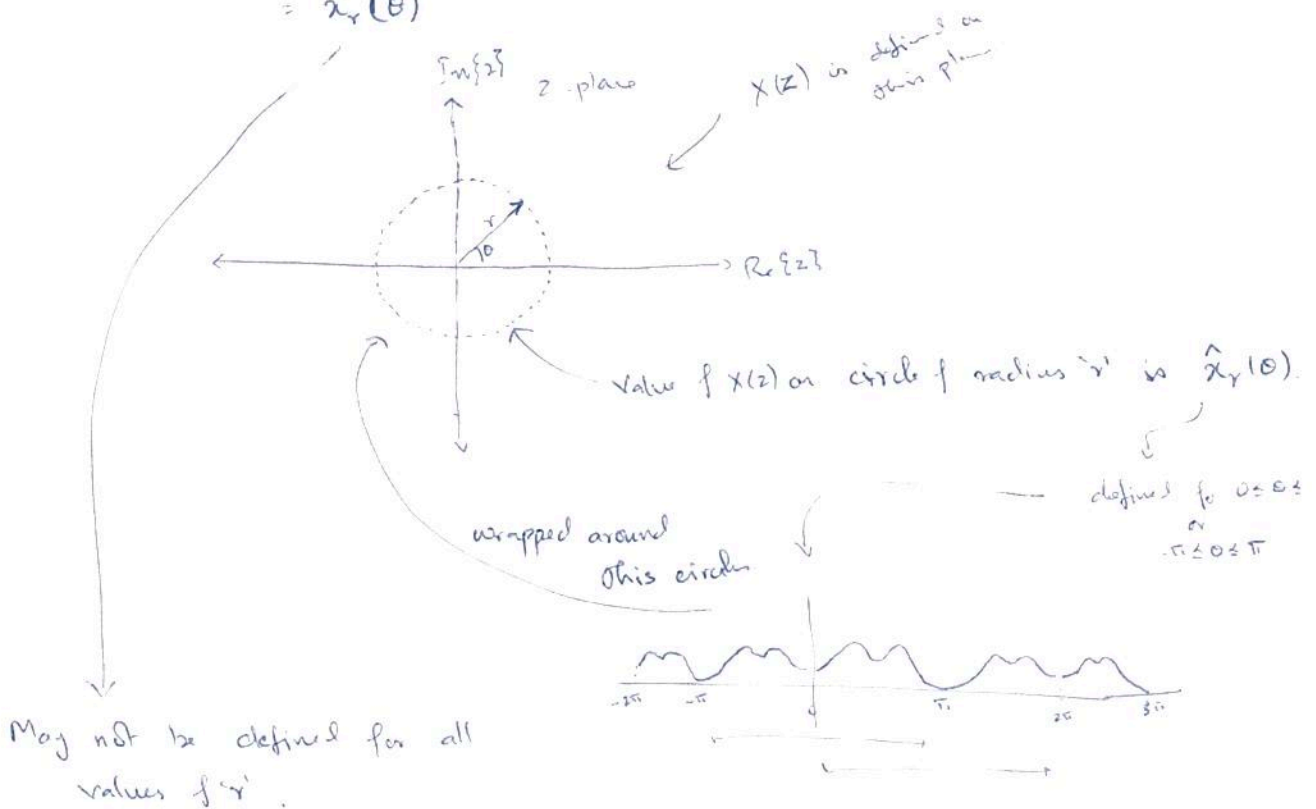 = x̂_r(θ)
Im{z}
z-plane
X(z) is defined on
this plane
r
θ
Re{z}
Value of X(z) on circle of radius 'r' is x̂_r(θ).
defined for 0≤θ≤
or
-π≤θ≤π
wrapped around
this circle
-2π -π 0 π 2π 3π
May not be defined for all
values of 'r'.